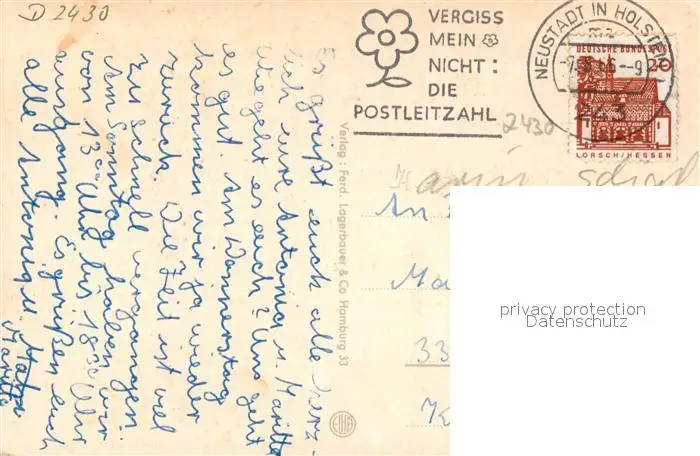 D 2430
VERGISS
MEIN
NICHT:
DIE
POSTLEITZAHL
NEUSTADT IN HOLST
DEUTSCHE BUNDESPOST
20
243
LORSCH/HESSEN
2430
An
Ma
33
K
privacy protection
Datenschutz
Verlag: Ferd. Lagerbauer & Co Hamburg 33
Es grüßt euch alle herz-
lich eure Antonia u. Maritta
wie geht es euch? Uns geht
es gut. Am Donnerstag
kommen wir ja wieder
zurück. Die Zeit ist viel
zu schnell vergangen.
Am Sonntag haben wir
von 13 Uhr bis 18 Uhr
ausgang. Es grüßen euch
alle Antonia u.
Maritta